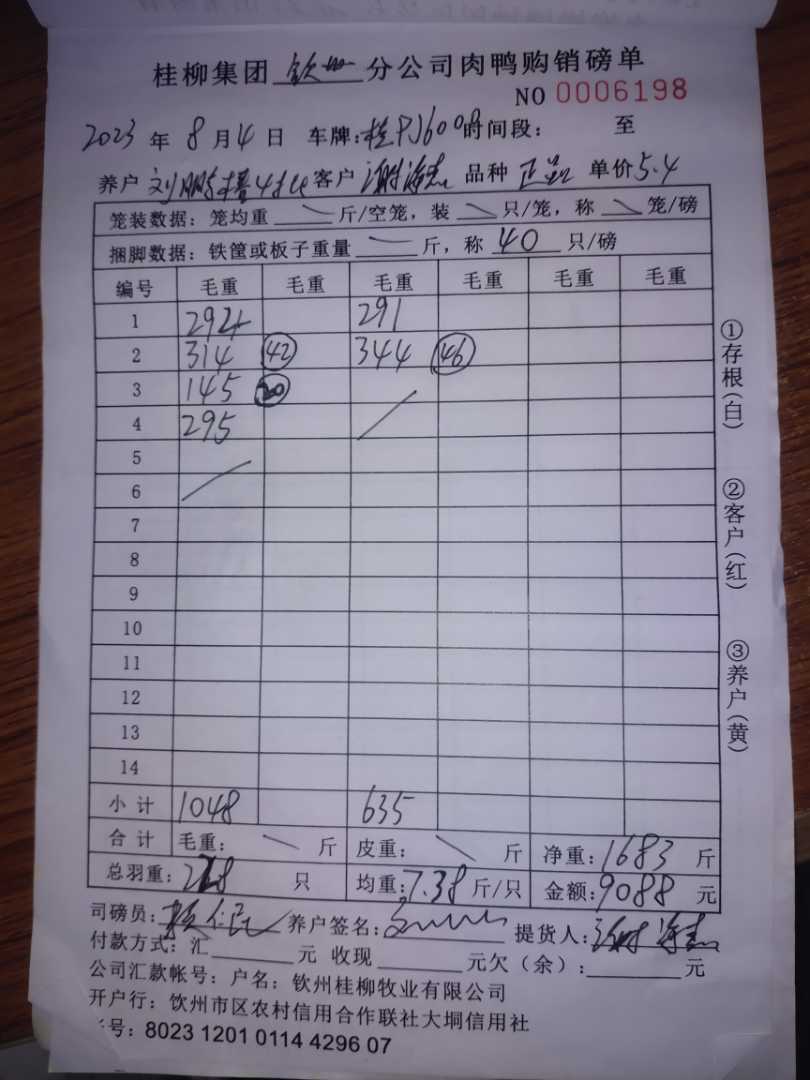 桂柳集团 钦州 分公司肉鸭购销磅单
NO 0006198
2023 年 8 月 4 日 车牌: 桂PJ600 时间段: 至
养户 刘鹏 客户 谢海志 品种 单价 5.4
笼装数据: 笼均重 斤/空笼, 装 只/笼, 称 笼/磅
捆脚数据: 铁筐或板子重量 斤, 称 40 只/磅
编号 毛重 毛重 毛重 毛重 毛重 毛重
1 292 291
2 314 42 344 46
3 145 20
4 295
5
6
7
8
9
10
11
12
13
14
小计 1048 635
合计 毛重: 斤 皮重: 斤 净重: 1683 斤
总羽重: 228 只 均重: 7.38 斤/只 金额: 9088 元
司磅员: 养户签名: 提货人: 谢海志
付款方式: 汇 元 收现 元欠(余): 元
公司汇款帐号: 户名: 钦州桂柳牧业有限公司
开户行: 钦州市区农村信用合作联社大垌信用社
号: 8023 1201 0114 4296 07
①存根(白)
②客户(红)
③养户(黄)